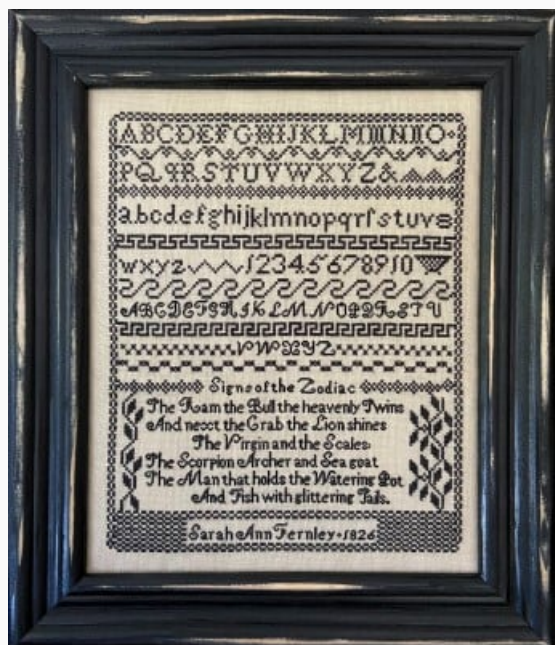 ABCDEFGHIJKLMNO
PQRSTUVWXYZ&
abcdefghijklmnopqrſstuv
wxyz 12345678910
ABCDEFGHIKLMNOPQRSTU
VWXYZ
Signs of the Zodiac
The Ram the Bull the heavenly Twins
And next the Crab the Lion shines
The Virgin and the Scales
The Scorpion Archer and Sea goat
The Man that holds the Watering Pot
And Fish with glittering Tails.
Sarah Ann Fernley • 1826